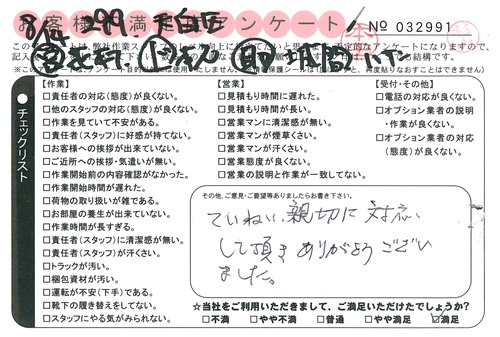 お客様満足度アンケート
8/12 299 天白区
№ 032991
チェックリスト
【作業】
□責任者の対応(態度)が良くない。
□他のスタッフの対応(態度)が良くない。
□作業を見ていて不安がある。
□責任者(スタッフ)に好感が持てない。
□お客様への挨拶が出来ていない。
□ご近所への挨拶・気遣いが無い。
□作業開始前の内容確認がなかった。
□作業開始時間が遅れた。
□荷物の取り扱いが雑である。
□お部屋の養生が出来ていない。
□作業時間が長すぎる。
□責任者(スタッフ)に清潔感が無い。
□責任者(スタッフ)が汗くさい。
□トラックが汚い。
□梱包資材が汚い。
□運転が不安(下手)である。
□靴下の履き替えをしてない。
□スタッフにやる気がみられない。
【営業】
□見積もり時間に遅れた。
□見積もり時間が長い。
□営業マンに清潔感が無い。
□営業マンが煙草くさい。
□営業マンが汗くさい。
□営業態度が良くない。
□営業の説明と作業が一致してない。
【受付・その他】
□電話の対応が良くない。
□オプション業者の説明
・作業が良くない。
□オプション業者の対応
(態度)が良くない。
その他、ご意見・ご要望等ありましたらお書き下さい。
ていねい、親切に対応
して頂きありがとうござい
ました。
☆当社をご利用いただきまして、ご満足いただけたでしょうか?
□不満 □やや不満 □普通 □やや満足 □満足